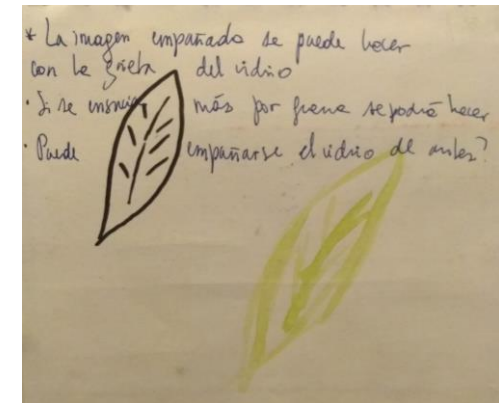 * La imagen empañado se puede hacer
con la grieta del vidrio
· Si se más por fuera se podrá hacer
· Puede empañarse el vidrio de antes?